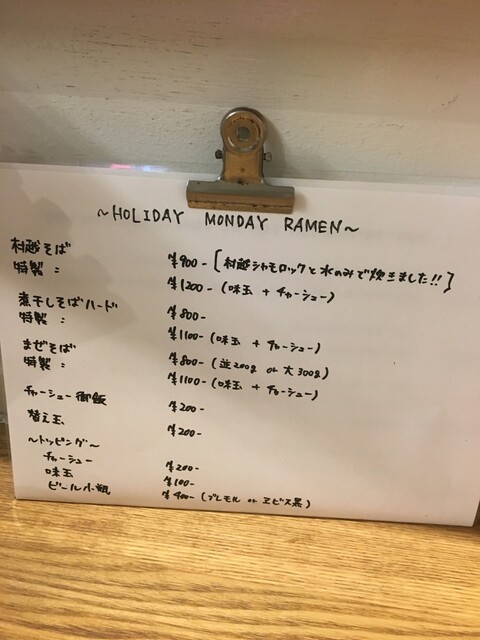 ～HOLIDAY MONDAY RAMEN～
村越そば ¥900- [村越シャモロックと水のみで炊きました!!]
特製 : ¥1200- (味玉 + チャーシュー)
煮干しそばハード ¥800-
特製 : ¥1100- (味玉 + チャーシュー)
まぜそば ¥800- (並200g or 大300g)
特製 : ¥1100- (味玉 + チャーシュー)
チャーシュー御飯 ¥200-
替え玉 ¥200-
～トッピング～
チャーシュー ¥200-
味玉 ¥100-
ビール小瓶 ¥400- (プレモル or ヱビス黒)